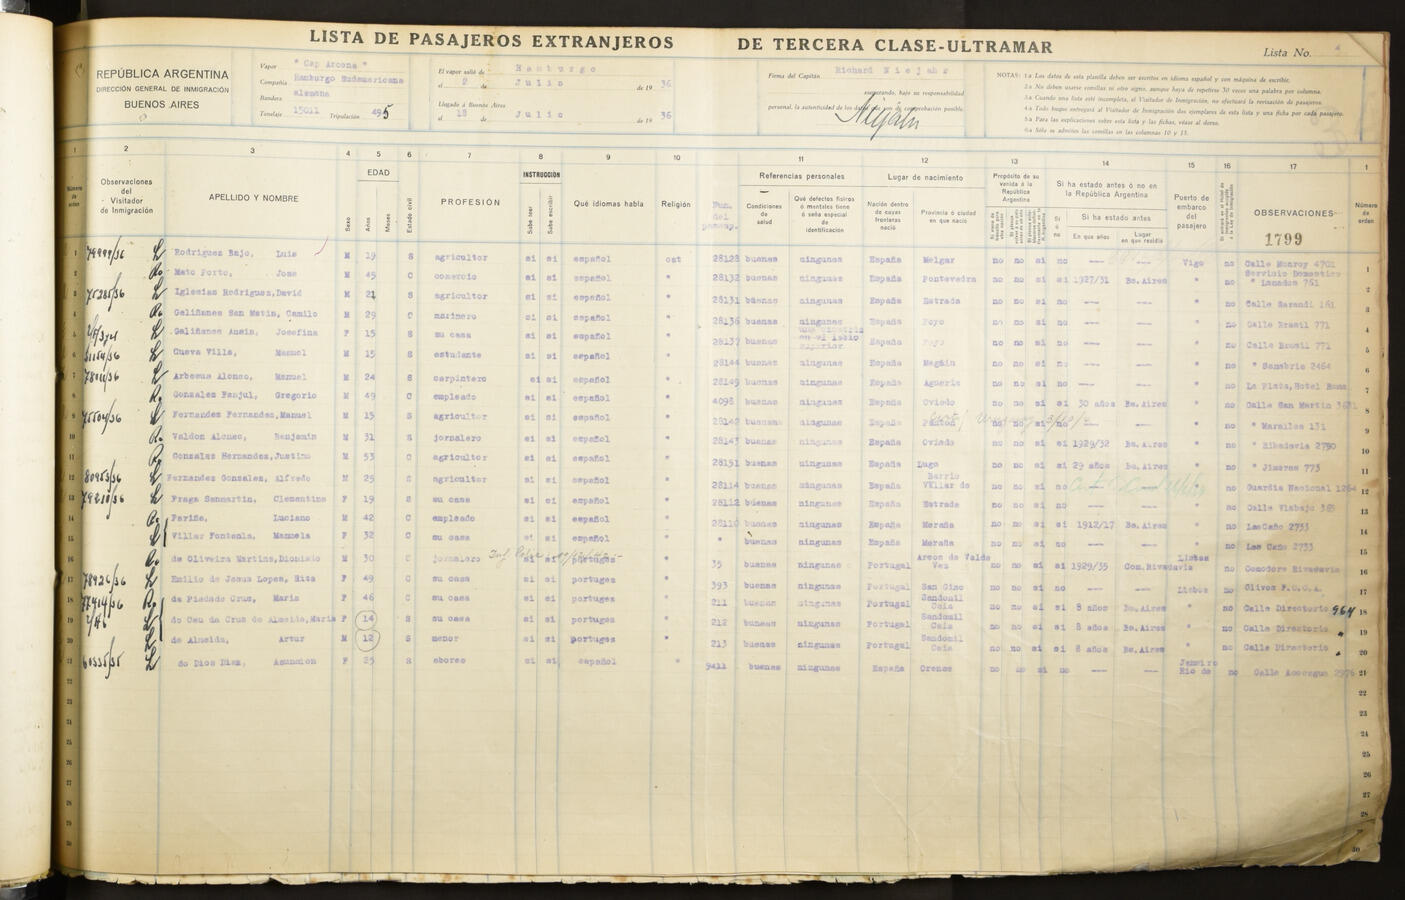 LISTA DE PASAJEROS EXTRANJEROS DE TERCERA CLASE-ULTRAMAR
Lista No.
REPÚBLICA ARGENTINA
DIRECCIÓN GENERAL DE INMIGRACIÓN
BUENOS AIRES
Vapor "Cap Arcona"
Compañia Hamburgo Sudamericana
Bandera alemana
Tonelaje 15011 Tripulación 495
El vapor salió de Hamburgo
el 2 de Julio de 1936
Llegado á Buenos Aires
el 18 de Julio de 1936
Firma del Capitán Richard Niejahr
asegurando, bajo su responsabilidad
personal, la autenticidad de los datos que son de comprobación posible.
Niejahr
NOTAS: 1a Los datos de esta planilla deben ser escritos en idioma español y con máquina de escribir.
2a No deben usarse comillas ni otro signo, aunque haya de repetirse 30 veces una palabra por columna.
3a Cuando una lista esté incompleta, el Visitador de Inmigración, no efectuará la revisación de pasajeros.
4a Todo buque entregará al Visitador de Inmigración dos ejemplares de esta lista y una ficha por cada pasajero.
5a Para las explicaciones sobre esta lista y las fichas, véase al dorso.
6a Sólo se admiten las comillas en las columnas 10 y 15.
1 2 3 4 5 6 7 8 9 10 11 12 13 14 15 16 17 1
Número de orden
Observaciones del Visitador de Inmigración
APELLIDO Y NOMBRE
Sexo
EDAD
Años
Meses
Estado civil
PROFESIÓN
INSTRUCCIÓN
Sabe leer
Sabe escribir
Qué idiomas habla
Religión
Referencias personales
Condiciones de salud
Qué defectos físicos ó mentales tiene ó seña especial de identificación
Lugar de nacimiento
Nación dentro de cuyas fronteras nació
Provincia ó ciudad en que nació
Propósito de su venida á la República Argentina
Si ha estado antes ó no en la República Argentina
Sí ó no
Si ha estado antes
En que años
Lugar en que residía
Puerto de embarco del pasajero
OBSERVACIONES
1799
Número de orden
1 Rodriguez Bajo, Luis M 19 S agricultor si si español cat 28128 buenas ningunas España Melgar no no si no — — Vigo no Calle Monroy 4701 1
2 Mato Porto, Jose M 45 C comercio si si español " 28132 buenas ningunas España Pontevedra no no si si 1927/31 Bs.Aires " no Servicio Domestico " Lanados 761 2
3 75285/36 Iglesias Rodriguez, David M 21 S agricultor si si español " 28131 buenas ningunas España Estrada no no si no — — " no Calle Sarandi 161 3
4 Galiñanes San Matin, Camilo M 29 C marinero si si español " 28136 buenas ningunas España Poyo no no si no — — " no Calle Brasil 771 4
5 Galiñanes Anain, Josefina F 15 S su casa si si español " 28137 buenas una cicatriz en el labio superior España Poyo no no si no — — " no Calle Brasil 771 5
6 Cueva Villa, Manuel M 15 S estudante si si español " 28144 buenas ningunas España no no si no — — " no " Sanabria 2464 6
7 Arbesua Alonso, Manuel M 24 S carpintero si si español " 28149 buenas ningunas España Agueria no no si no — — " no La Plata, Hotel Roma 7
8 Gonzalez Fanjul, Gregorio M 49 C empleado si si español " 4098 buenas ningunas España Oviedo no no si si 30 años Bs.Aires " no Calle San Martin 8
9 75504/36 Fernandez Fernandez, Manuel M 15 S agricultor si si español " 28142 buenas ningunas España Panton no no si no — — " no " Maralles 131 9
10 Valdon Alonso, Benjamin M 31 S jornalero si si español " 28143 buenas ningunas España Oviedo no no si si 1929/32 Bs.Aires " no " Ribadavia 2790 10
11 Gonzalez Hernandez, Justino M 53 C agricultor si si español " 28151 buenas ningunas España Lugo no no si si 29 años Bs.Aires " no " Jimenes 773 11
12 80953/36 Fernandez Gonzalez, Alfredo M 25 S agricultor si si español " 28114 buenas ningunas España Barrio Villar de no no si no — — " no Guardia Nacional 1264 12
13 79218/36 Fraga Sanmartin, Clementina F 19 S su casa si si español " 28112 buenas ningunas España Estrada no no si no — — " no Calle Viabajo 365 13
14 Fariña, Luciano M 42 C empleado si si español " 28110 buenas ningunas España Meraña no no si si 1912/17 Bs.Aires " no Las Caño 2733 14
15 Villar Fontenla, Manuela F 32 C su casa si si español " " buenas ningunas España Meraña no no si no — — " no Las Caño 2733 15
16 de Oliveira Martins, Dionisio M 30 C jornalero si si portugues " 35 buenas ningunas Portugal Arcos de Valde Vez no no si si 1929/35 Com.Rivadavia Lisboa no Comodoro Rivadavia 16
17 78926/36 Emilio de Jesus Lopes, Rita F 49 C su casa si si portugues " 393 buenas ningunas Portugal San Gino no no si no — — Lisboa no Olivos F.C.C.A. 17
18 77414/36 da Piedade Cruz, Maria F 46 C su casa si si portugues " 211 buenas ningunas Portugal Sandomil Ceia no no si si 8 años Bs.Aires " no Calle Directorio 964 18
19 do Ceu da Cruz de Almeida, Maria F 14 S su casa si si portugues " 212 buenas ningunas Portugal Sandomil Ceia no no si si 8 años Bs.Aires " no Calle Directorio " 19
20 de Almeida, Artur M 12 S menor si si portugues " 213 buenas ningunas Portugal Sandomil Ceia no no si si 8 años Bs.Aires " no Calle Directorio " 20
21 60535/35 do Dios Diaz, Asuncion F 25 S obrero si si español " 9411 buenas ningunas España Orense no no si no — — Janeiro Rio de no Calle Aconcgua 2976 21
22 22
23 23
24 24
25 25
26 26
27 27
28 28
29 29
30 30